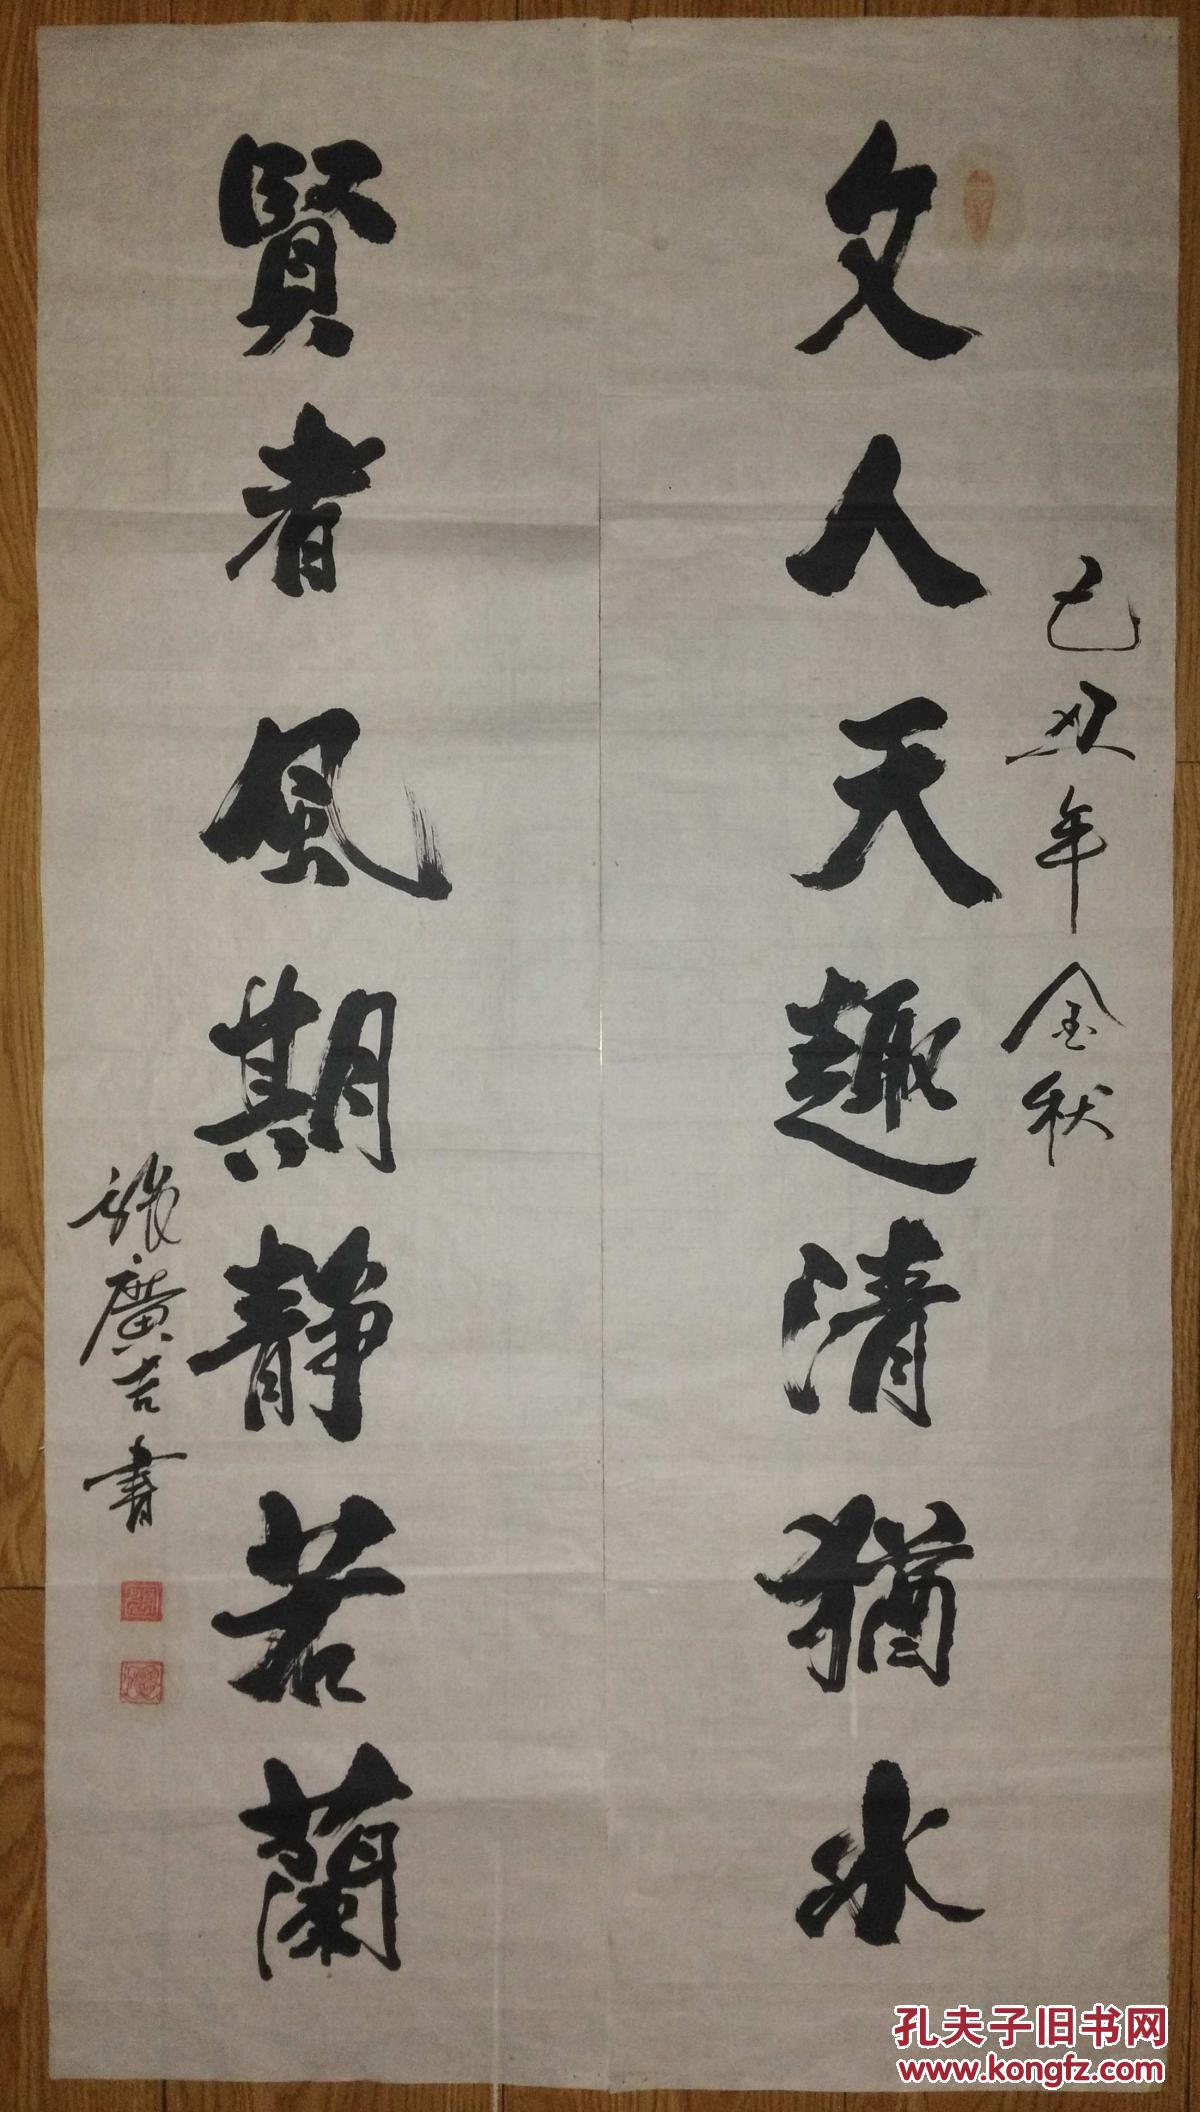 己丑年金秋
文人天趣清猶水
賢者風期靜若蘭
張廣吉書
孔夫子旧书网
www.kongfz.com